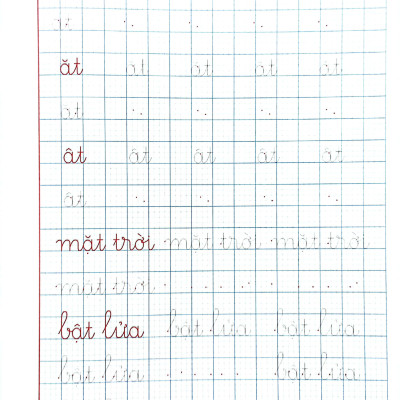 ăt ăt ăt ăt ăt
ăt
ât ât ât ât ât
ât
mặt trời mặt trời mặt trời
mặt trời
bật lửa bật lửa bật lửa
bật lửa bật lửa